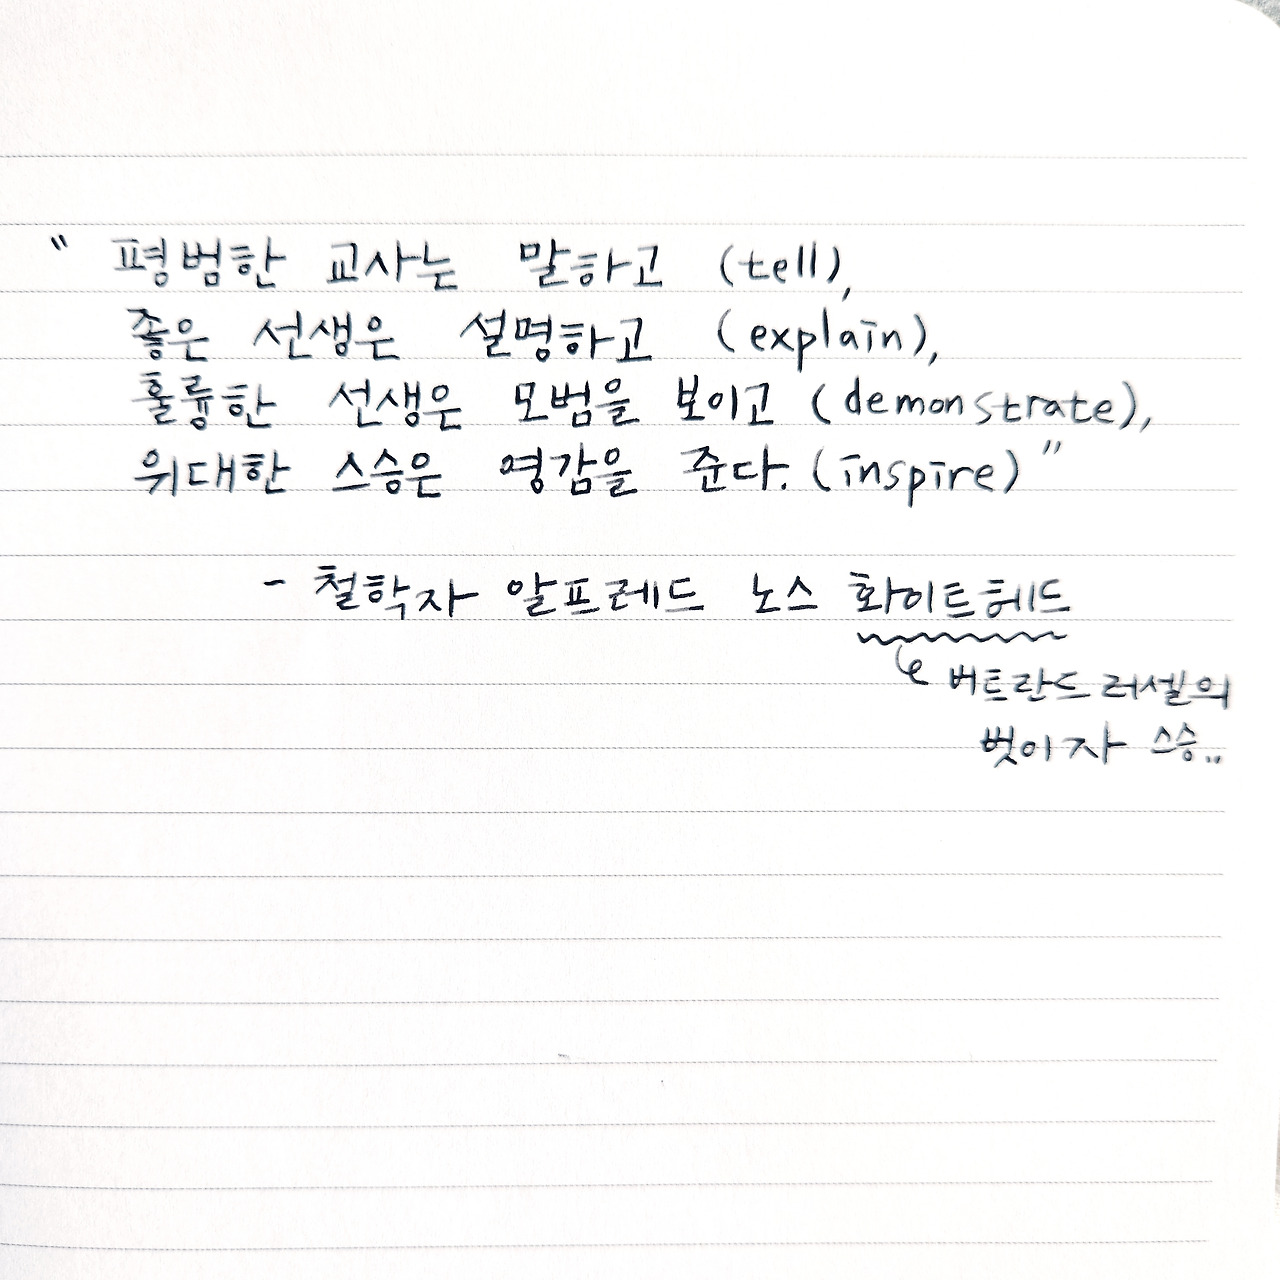 " 평범한 교사는 말하고 (tell),
좋은 선생은 설명하고 (explain),
훌륭한 선생은 모범을 보이고 (demonstrate),
위대한 스승은 영감을 준다. (inspire) "
- 철학자 알프레드 노스 화이트헤드
버트란드 러셀의
벗이자 스승..